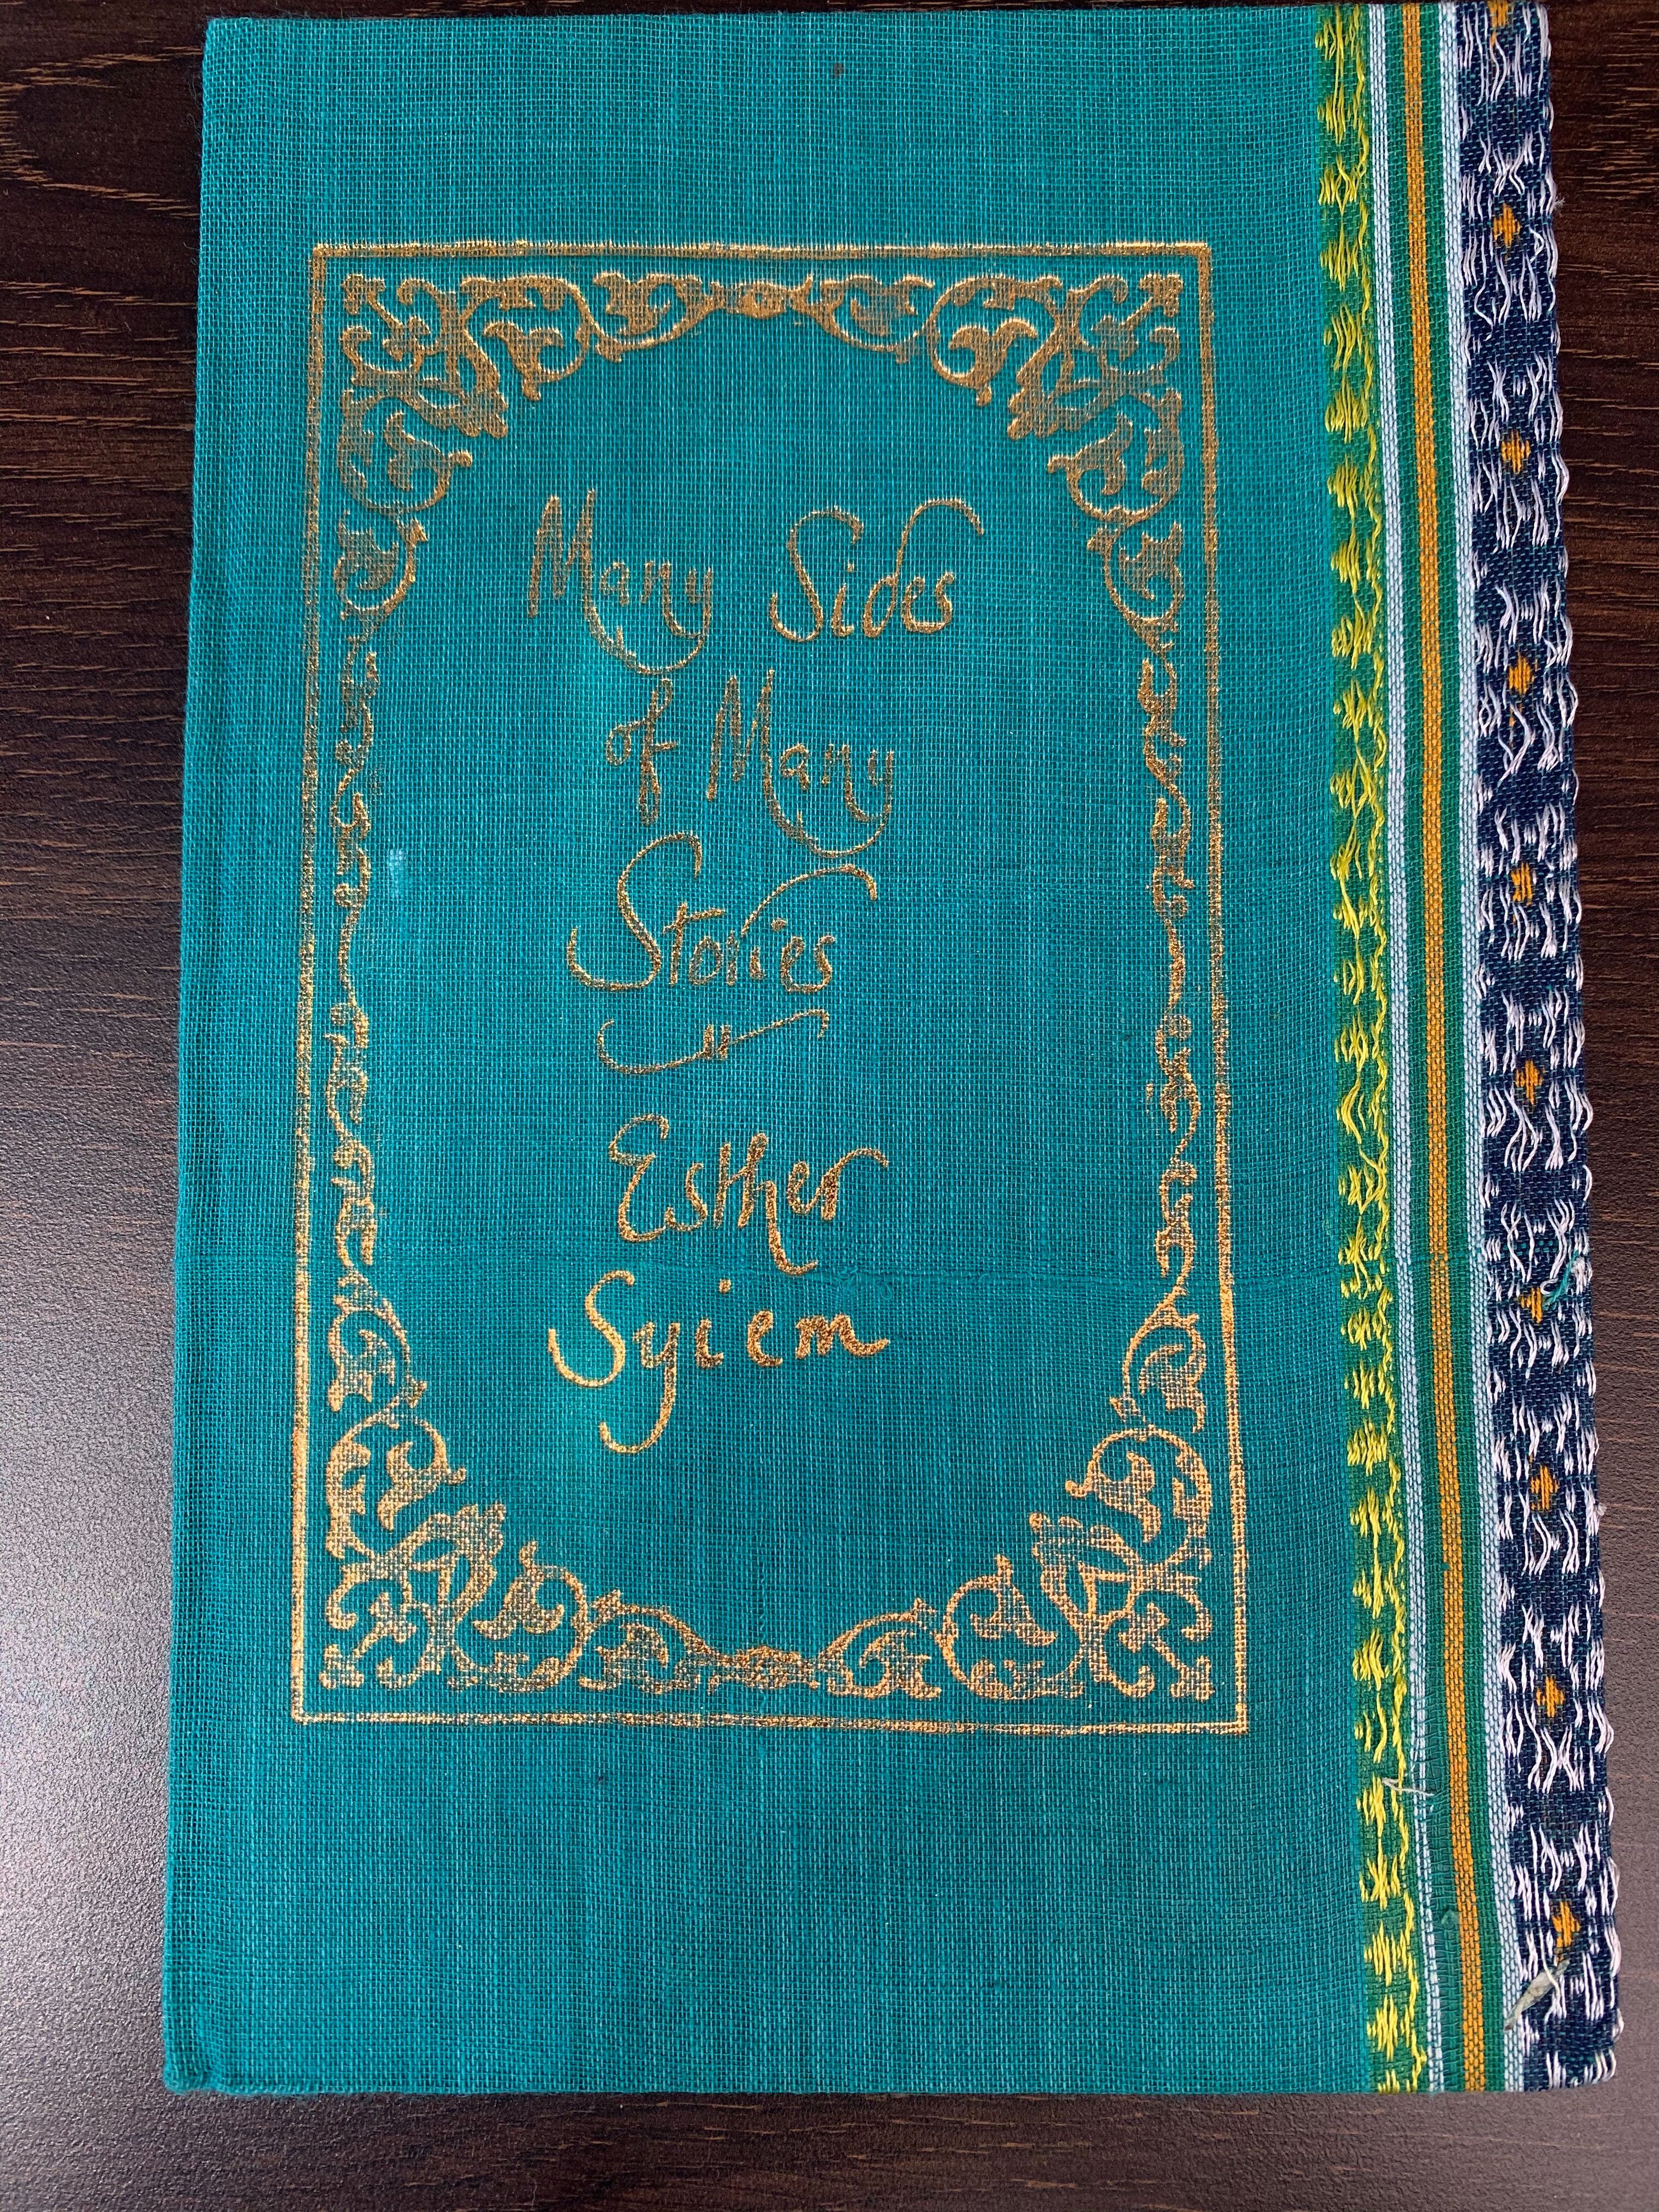 Many Sides
of Many
Stories
Esther
Syiem